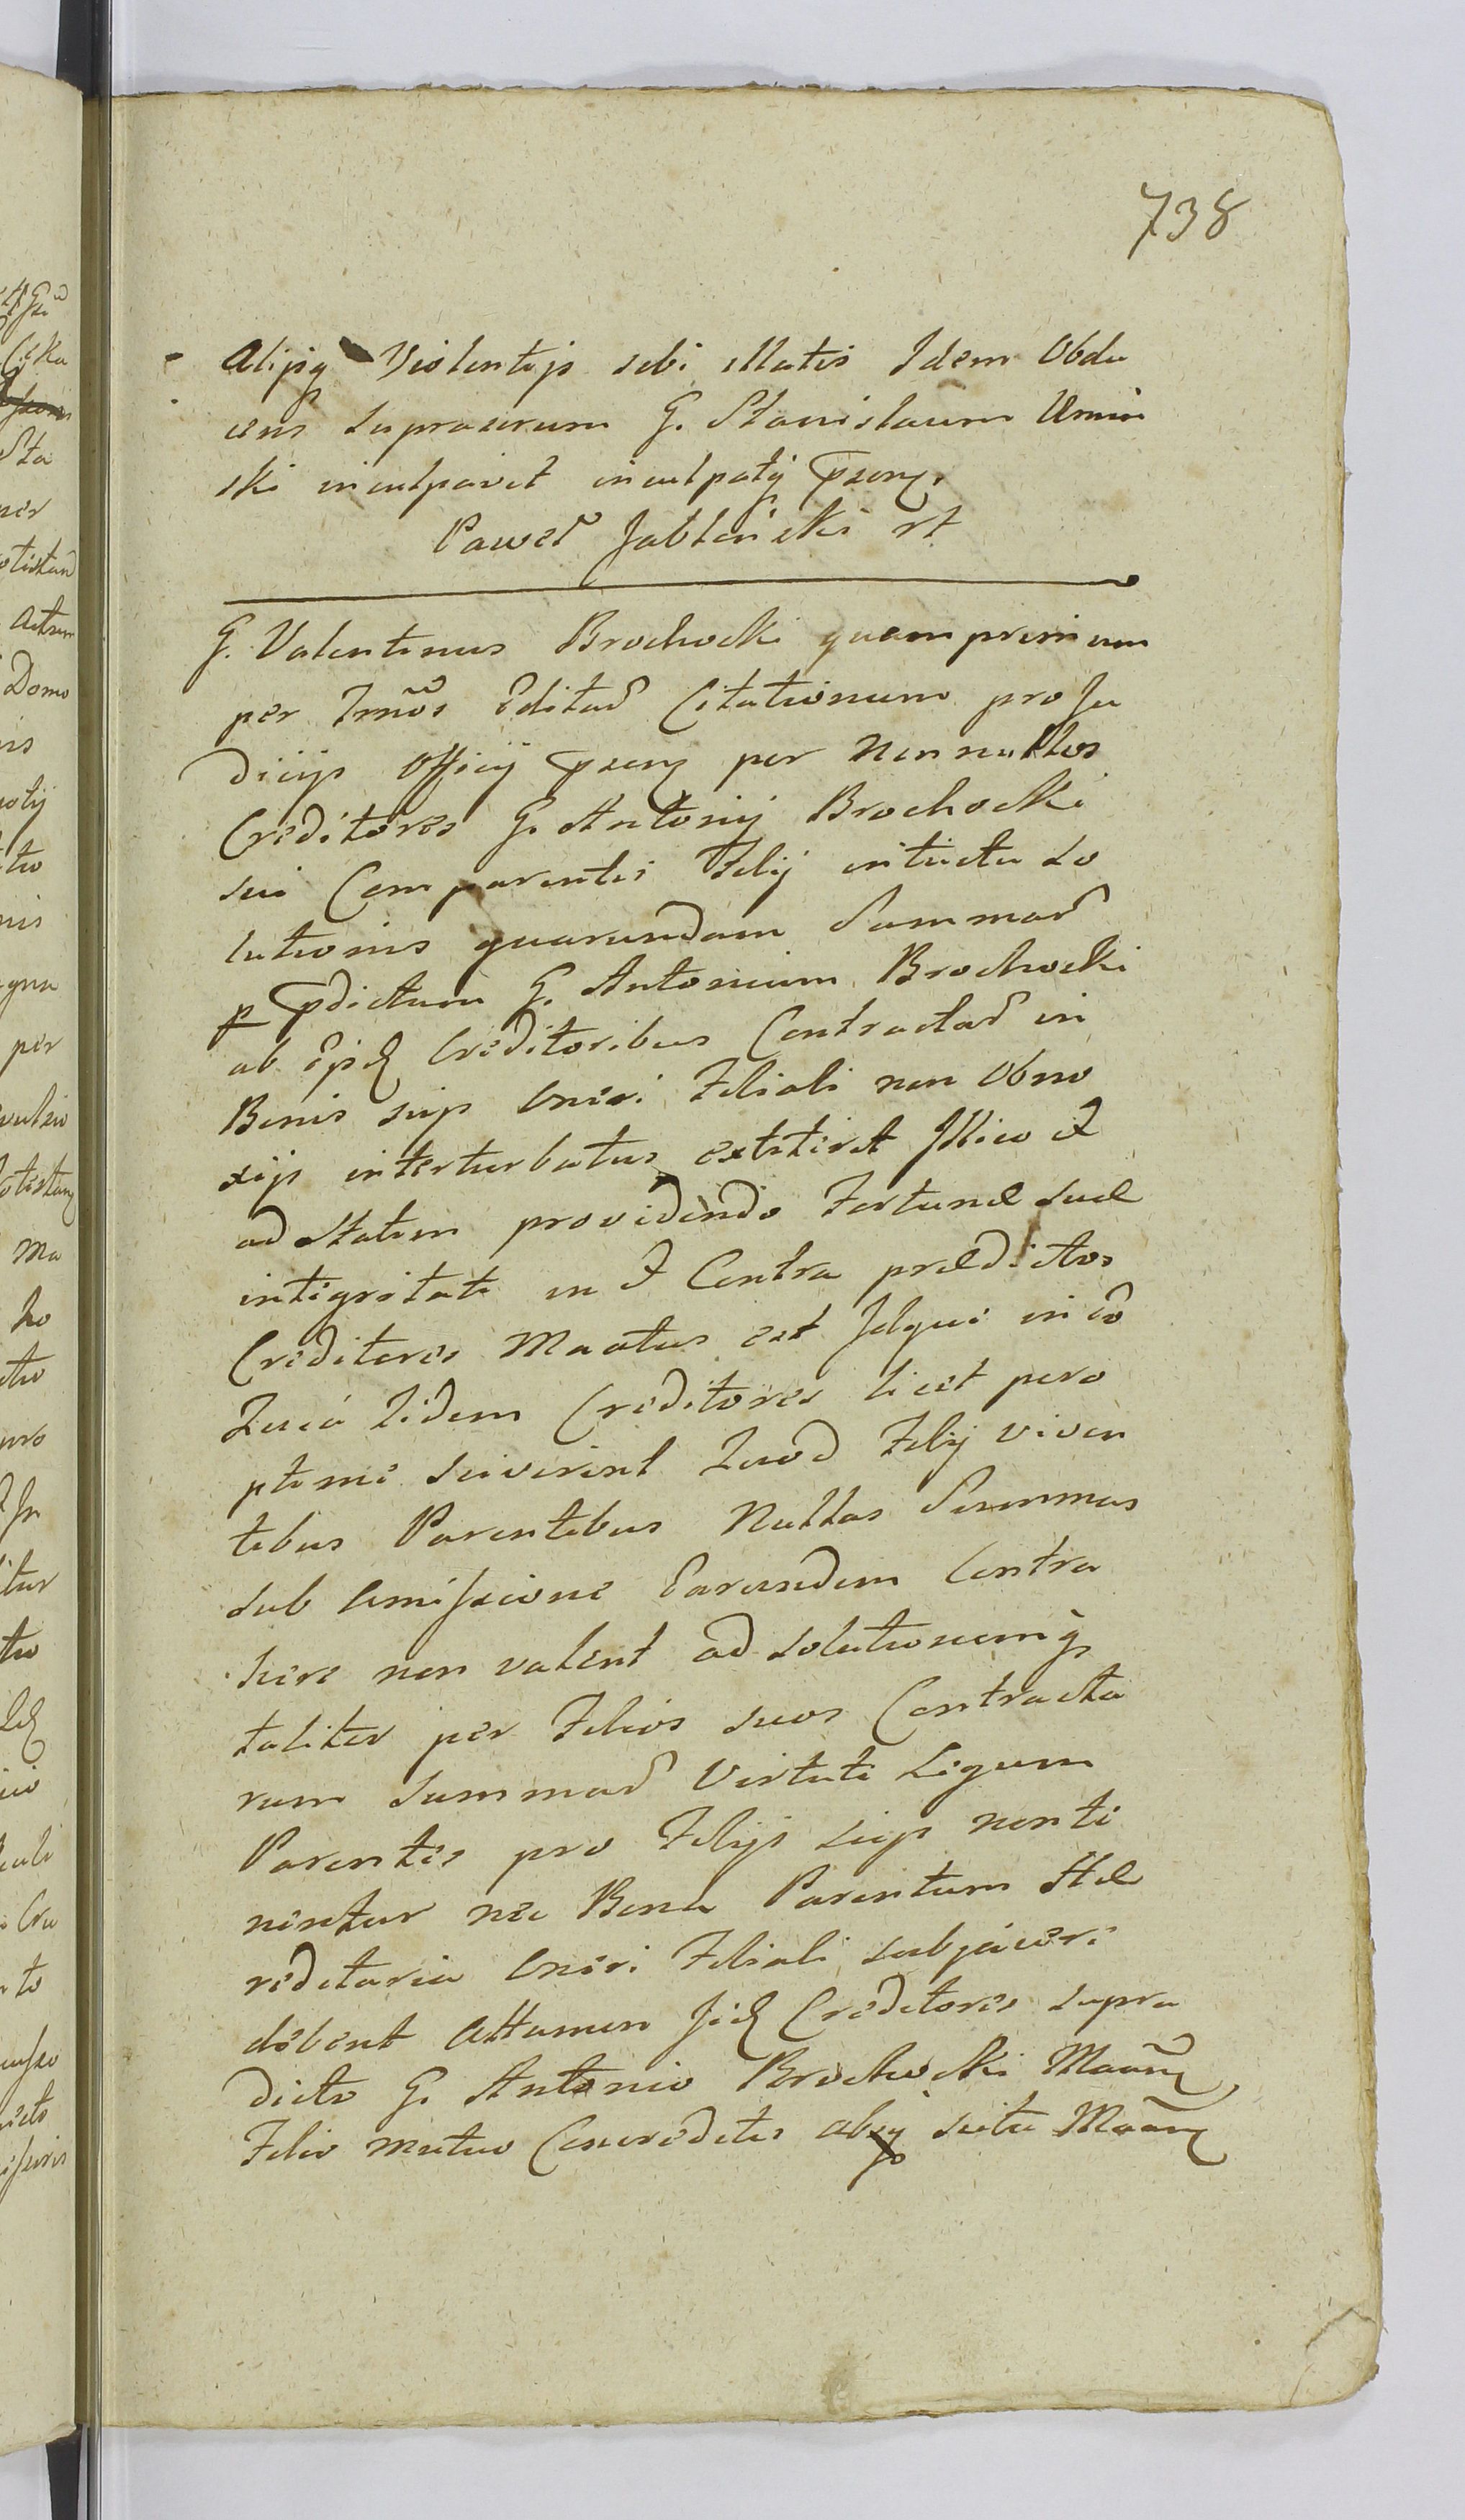 738
Alijsq Violentijs sibi illatis Idem Obdu
cens supranrum G. Stanislaum Umin
ski inculpavit inculpatq prnz.
Paweł Jabłoński rt
G. Valentinus Brochocki quamprimum
per Imõs Editad Citationum pro Ju
dicijs Officij prnz per Nonnullos
Creditores G. Antonij Brochocki
sui Comparentis Filij intuitu so
lutionis quarundam Summad
p pdictum G. Antonium Brochocki
ab Ejsd Creditoribus Contractad in
Bonis suis Oneri Filiali non Obno
xijs interturbatus extiterit Illico et
ad statim providendo Fortunæ suæ
integritati in et Contra prædictos
Creditores Mantus est Idqui in eo
Quia Iidem Creditores licet pero
ptime sciverint Quod Filij viven
tibus Parentibus Nullas Summas
sub amissione Earundem Contra
here non valent ad solutionemq
taliter per Filios suos Contracta
rum summad Virtute Legum
Parentes pro Filijs suis non te
nentur nec Bona Parentum Hæ
reditaria Oneri Filiali subjacere
debent Attamen Iid Creditores supra
dicto G. Antonio Brochocki Maarnz
Filio mutuo Concreditis absq scitu Maarnz